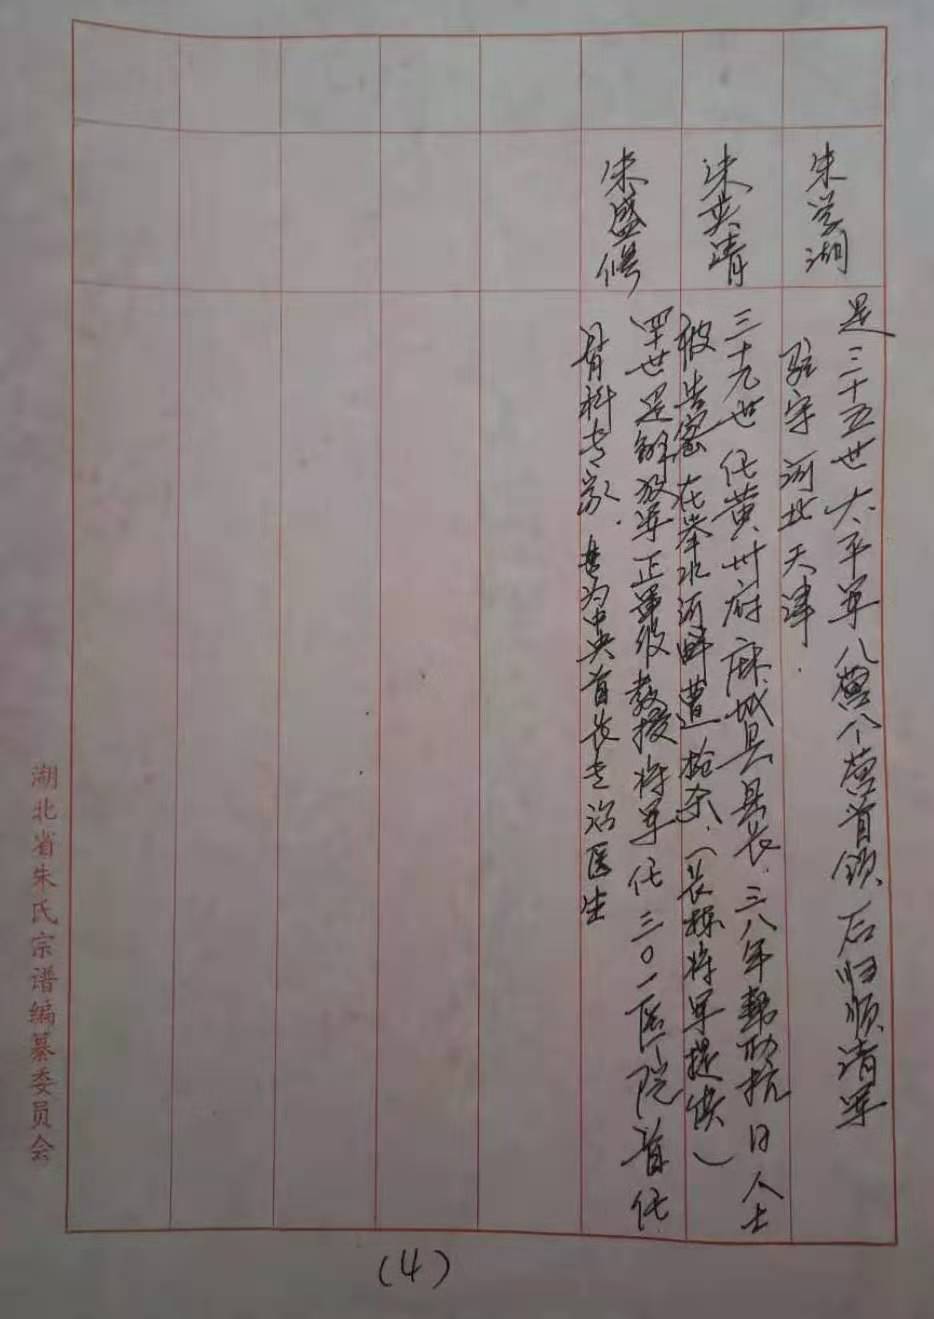 朱学湖
是三十五世太平军八营个营首领后归顺清军
驻守河北天津.
朱英清
三十九世任黄州府麻城县县长.三八年帮助抗日人士
被告密在举水河畔遭枪杀.(长穄将军提供)
朱盛修
四十世是解放军正军级教授将军任三〇一医院首任
骨科专家.专为中央首长专治医生
湖北省朱氏宗谱编纂委员会
(4)